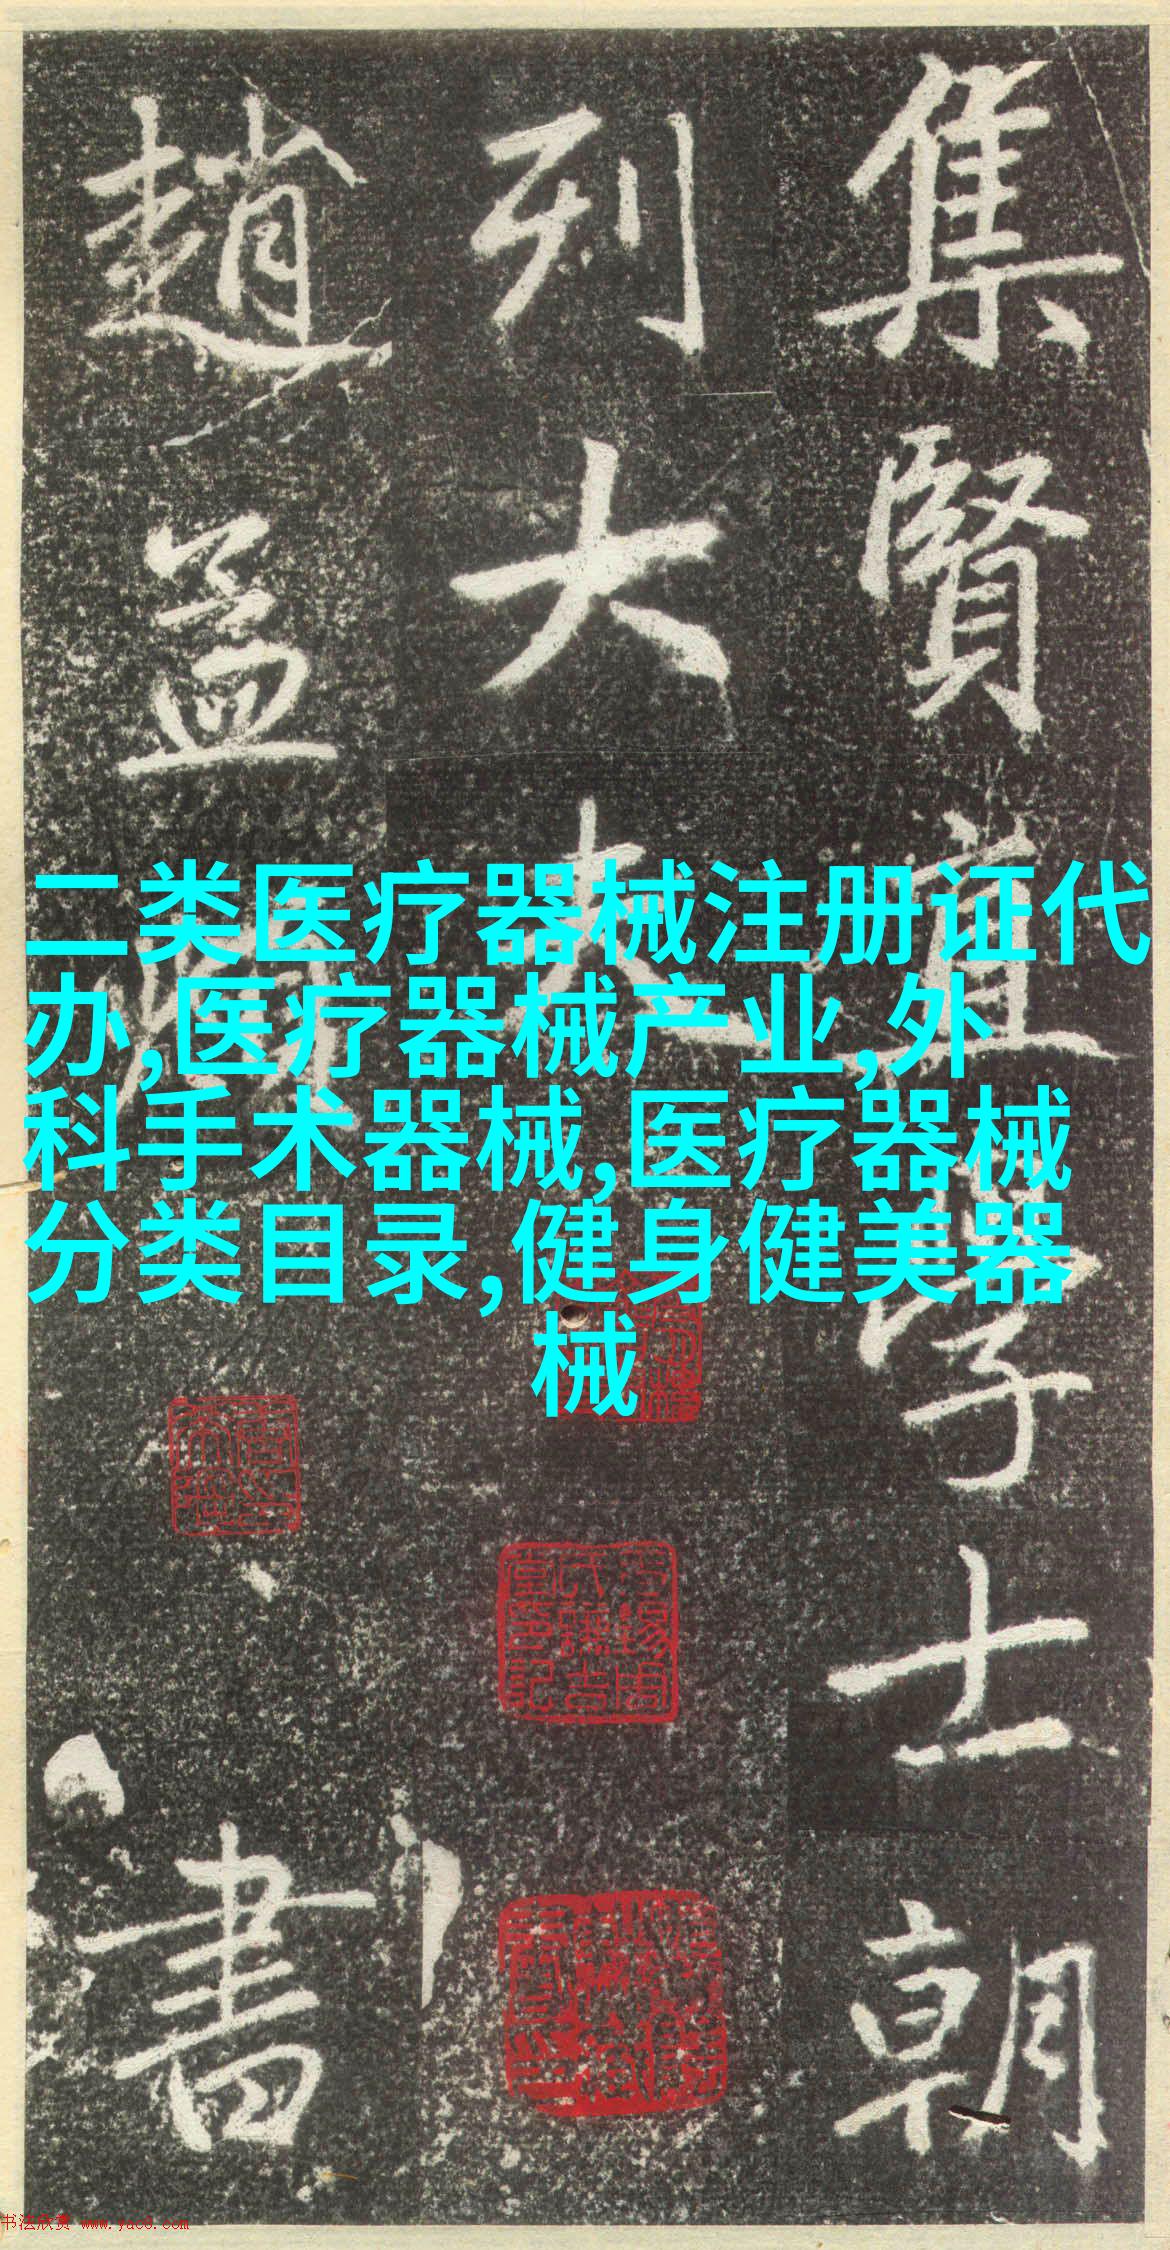 集賢直學士朝
列大夫
趙孟頫
書
二类医疗器械注册证代
办,医疗器械产业,外
科手术器械,医疗器械
分类目录,健身健美器
械
书法欣赏 www.yac8.com